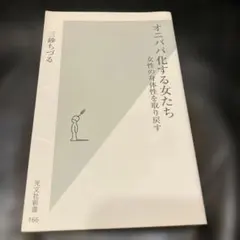 オニババ化する女たち
女性の身体性を取り戻す
三砂ちづる
光文社新書
166